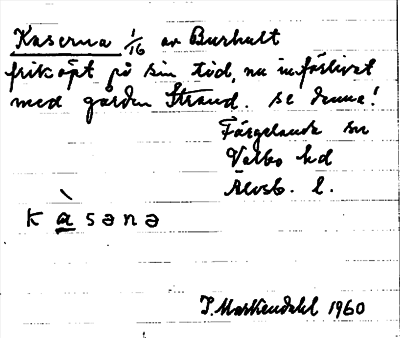 Kaserna 1/16 av Burhult
friköpt på sin tid, nu införlivat
med gården Strand. se denna!
Färgelanda sn
Valbo hd
Älvsb. l.
k à s ə n ə
J. Markendahl 1960